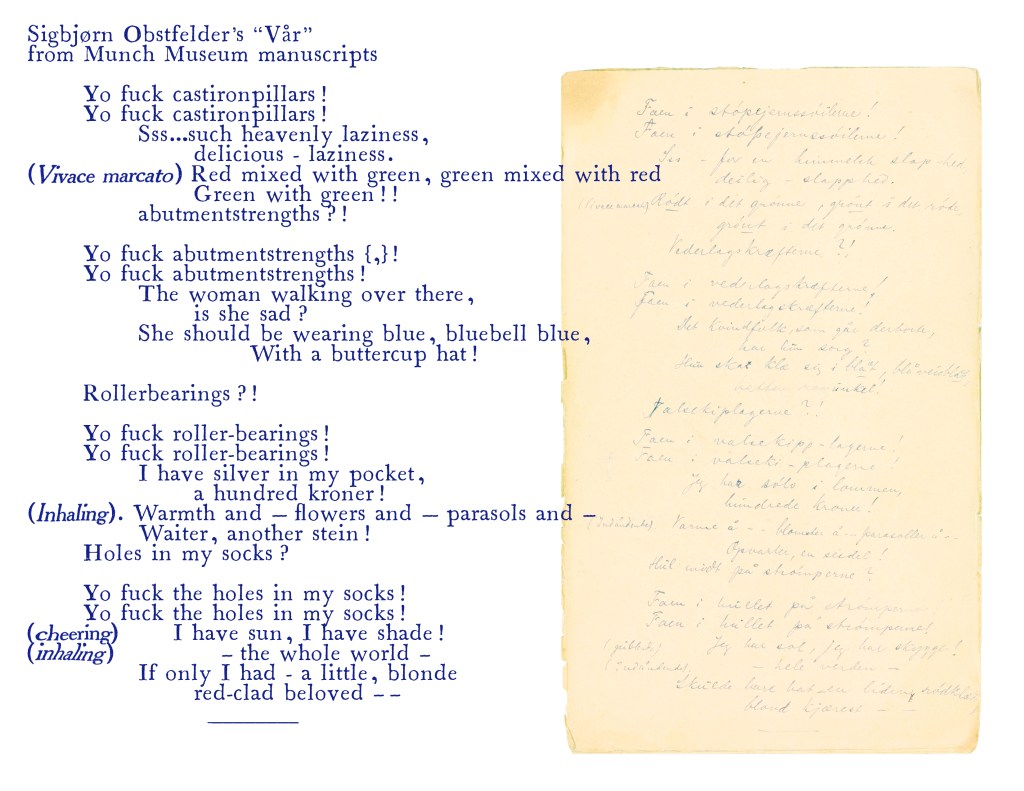 Sigbjørn Obstfelder's “Vår”
from Munch Museum manuscripts
Yo fuck castironpillars !
Yo fuck castironpillars !
Sss...such heavenly laziness,
delicious - laziness.
(Vivace marcato) Red mixed with green, green mixed with red
Green with green ! !
abutmentstrengths ? !
Yo fuck abutmentstrengths {,} !
Yo fuck abutmentstrengths !
The woman walking over there,
is she sad ?
She should be wearing blue, bluebell blue,
With a buttercup hat !
Rollerbearings ? !
Yo fuck roller-bearings !
Yo fuck roller-bearings !
I have silver in my pocket,
a hundred kroner !
(Inhaling). Warmth and — flowers and — parasols and —
Waiter, another stein !
Holes in my socks ?
Yo fuck the holes in my socks !
Yo fuck the holes in my socks !
(cheering) I have sun, I have shade !
(inhaling) – the whole world –
If only I had - a little, blonde
red-clad beloved – –
Faen i støpejernssøilerne!
Faen i støpejernssøilerne!
deilig - slapphed.
Rødt i det grønne, grønt i det røde,
grønt i det grønne.
Vederlagskræfterne ?!
Faen i vederlagskræfterne!
Faen i vederlagskræfterne!
Det kvindfolk, som går derborte,
har hun sorg?
Hun skal klæ sig i blåt,
Faen i
Faen i
Jeg har sølv i lommen,
hundrede kroner!
Varme å - - blomster å - - parasoller å - -
Opvarter, en seidel!
Hul midt på strømperne ?
Faen i hullet på
Faen i hullet på strømperne!
Jeg har sol, jeg har skygge!
- hele verden -
Skulde bare hat en liden,
blond kjæreste - -